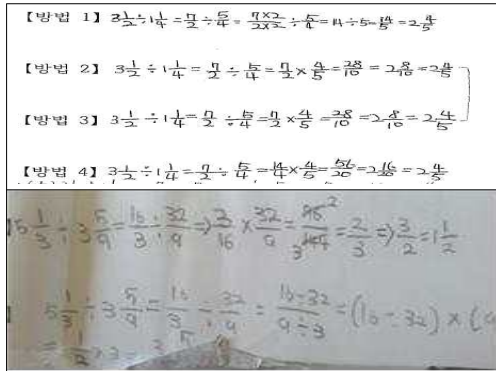 【방법 1】 3 1/2 ÷ 1 1/4 = 7/2 ÷ 5/4 = 7×2/2×2 ÷ 5/4 = 14÷5 = 14/5 = 2 4/5
【방법 2】 3 1/2 ÷ 1 1/4 = 7/2 ÷ 5/4 = 7/2 × 4/5 = 28/10 = 2 8/10 = 2 4/5
【방법 3】 3 1/2 ÷ 1 1/4 = 7/2 ÷ 5/4 = 7/2 × 4/5 = 28/10 = 2 8/10 = 2 4/5
【방법 4】 3 1/2 ÷ 1 1/4 = 7/2 ÷ 5/4 = 14/4 × 4/5 = 56/20 = 2 16/20 = 2 4/5
5 1/3 ÷ 3 5/9 = 16/3 ÷ 32/9 ⇒ 3/16 × 32/9 = 2/3 ⇒ 3/2 = 1 1/2
5 1/3 ÷ 3 5/9 = 16/3 ÷ 32/9 = 16÷32/9÷3 = (16÷32) ×
= 1/2 ÷ 3 =